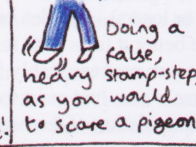 Doing a
false,
heavy stomp-step,
as you would
to scare a pigeon
!